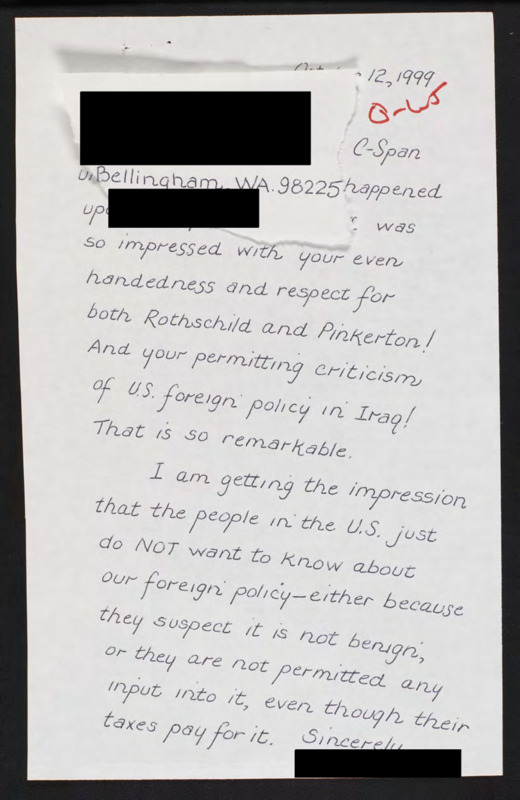 12, 1999
O-W5
C-Span
Bellingham, WA. 98225 happened
was
so impressed with your even
handedness and respect for
both Rothschild and Pinkerton!
And your permitting criticism
of U.S. foreign policy in Iraq!
That is so remarkable.
I am getting the impression
that the people in the U.S. just
do NOT want to know about
our foreign policy—either because
they suspect it is not benign,
or they are not permitted any
input into it, even though their
taxes pay for it. Sincerely